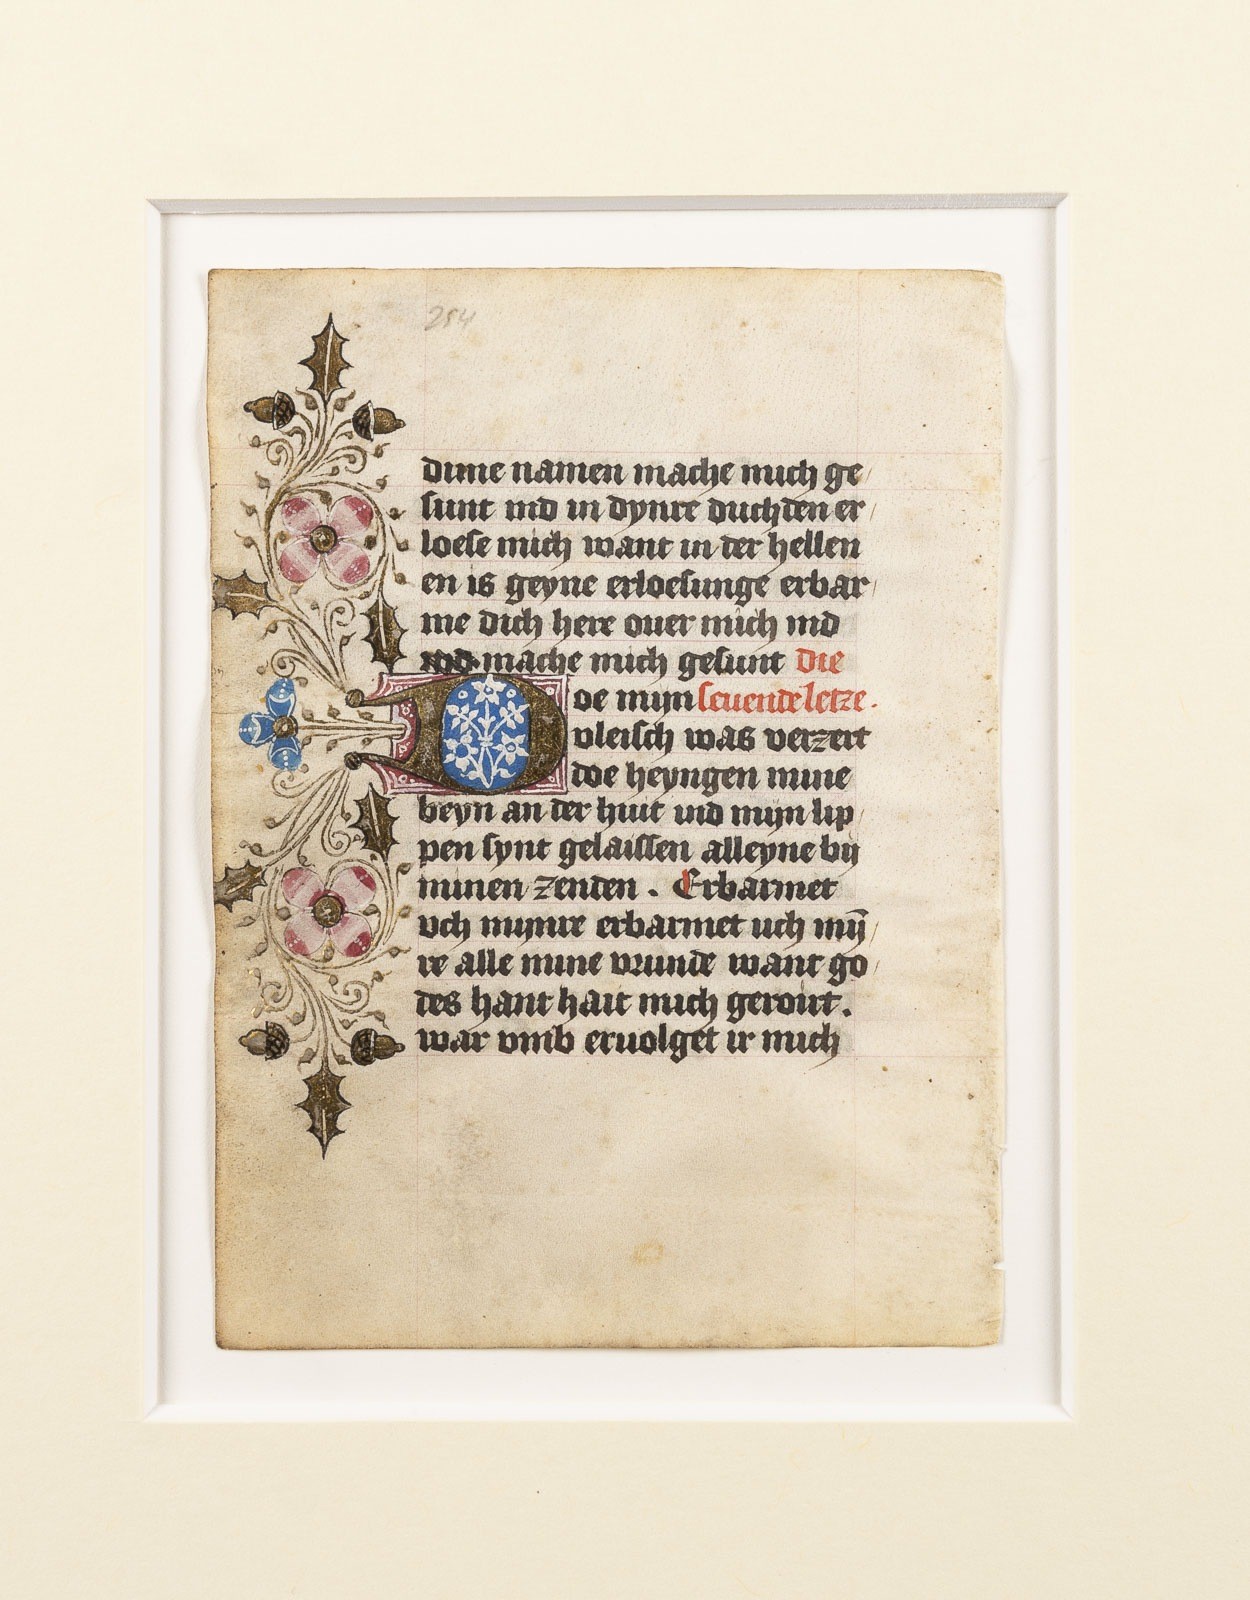 254
dime namen mache mich ge
sunt ind in dynre duchden er
loese mich want in der hellen
en is geyne erloesunge erbar
me dich here ouer mich ind
ind mache mich gesunt die
Doe mijn seuende letze.
vleisch was verzert
doe heyngen mine
beyn an der huit ind mijn lip
pen synt gelaissen alleyne bij
minen zenden . Erbarmet
vch mijnre erbarmet uch mȳ
re alle mine vrunde want go
des hant hait mich gerourt.
war vmb eruolget ir mich